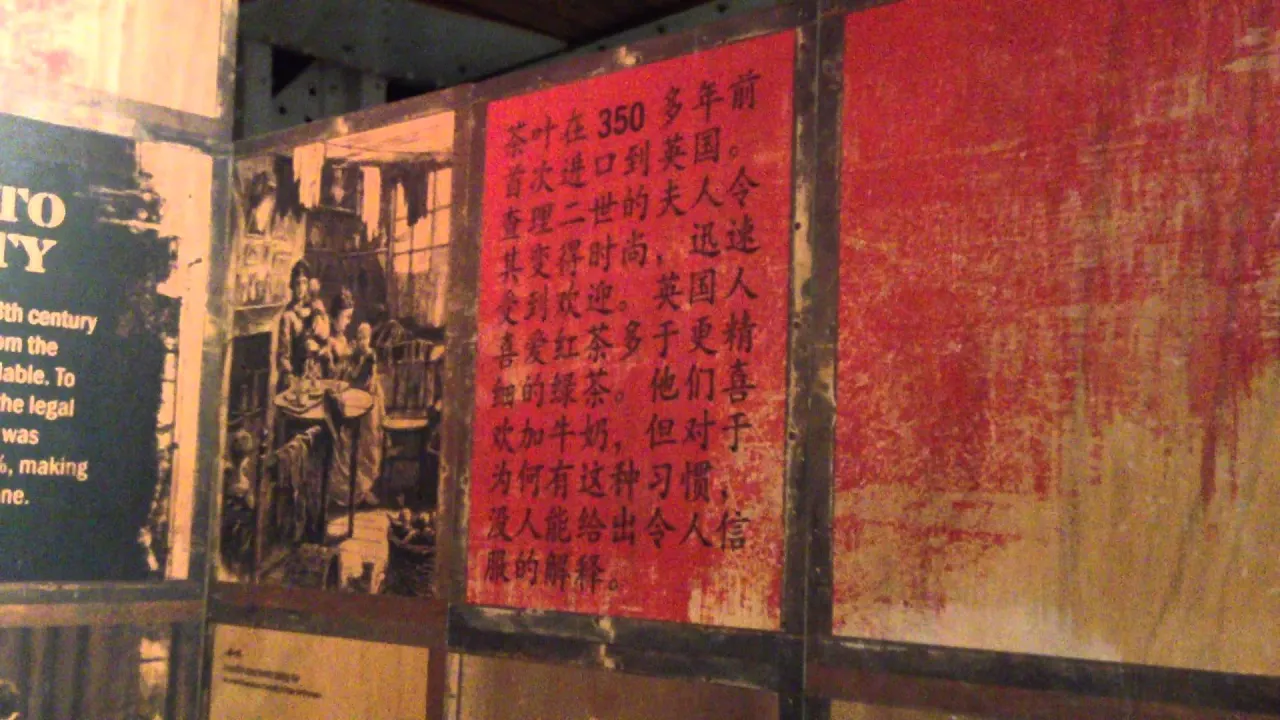 TO
TY
8th century
om the
lable. To
the legal
was
%, making
ne.
茶叶在 350 多年前
首次进口到英国。
查理二世的夫人令
其变得时尚，迅速
受到欢迎。英国人
喜爱红茶多于更精
细的绿茶。他们喜
欢加牛奶，但对于
为何有这种习惯，
没人能给出令人信
服的解释。